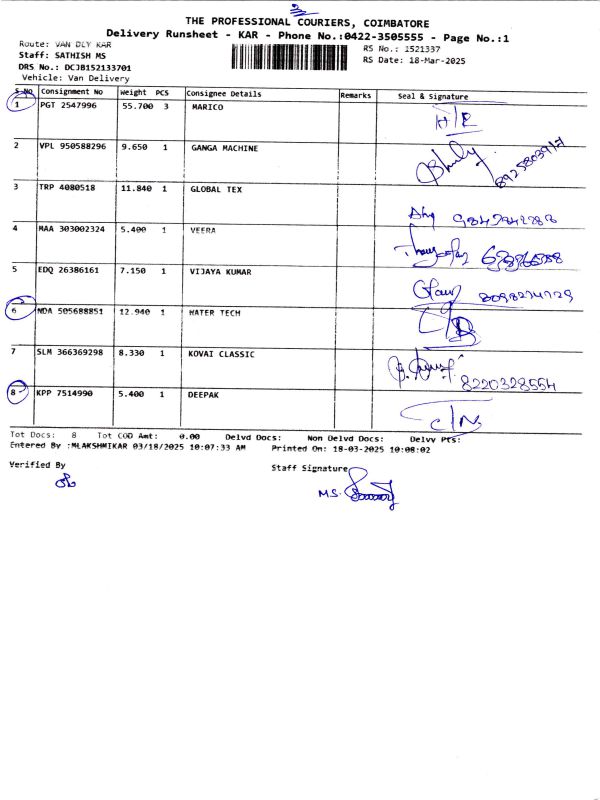 THE PROFESSIONAL COURIERS, COIMBATORE
Delivery Runsheet - KAR - Phone No.:0422-3505555 - Page No.:1
Route: VAN DLY KAR
RS No.: 1521337
Staff: SATHISH MS
RS Date: 18-Mar-2025
DRS No.: DCJB152133701
Vehicle: Van Delivery
S.No Consignment No Weight PCS Consignee Details Remarks Seal & Signature
1 PGT 2547996 55.700 3 MARICO
2 VPL 950588296 9.650 1 GANGA MACHINE
3 TRP 4080518 11.840 1 GLOBAL TEX
4 MAA 303002324 5.400 1 VEERA
5 EDQ 26386161 7.150 1 VIJAYA KUMAR 8098274729
6 NDA 505688851 12.940 1 WATER TECH
7 SLM 366369298 8.330 1 KOVAI CLASSIC 8220328554
8 KPP 7514990 5.400 1 DEEPAK C/N
Tot Docs: 8 Tot COD Amt: 0.00 Delvd Docs: Non Delvd Docs: Delvy Pts:
Entered By :MLAKSHMIKAR 03/18/2025 10:07:33 AM Printed On: 18-03-2025 10:08:02
Verified By
Staff Signature
M.S.